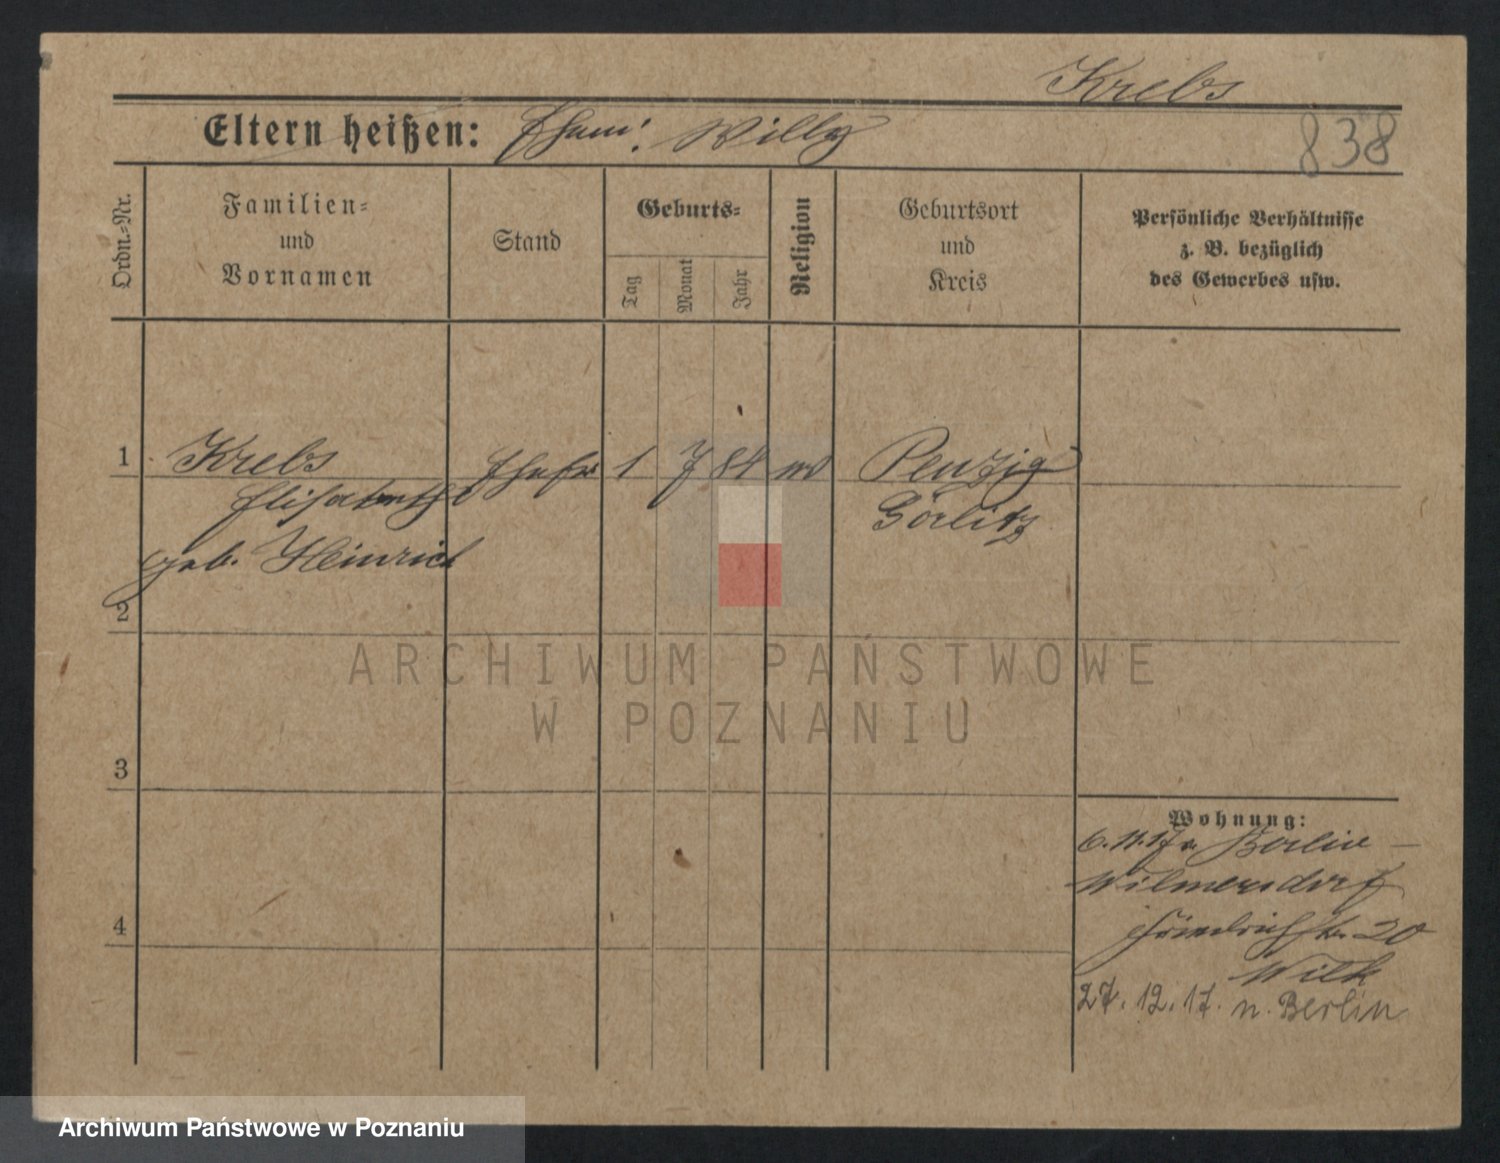 Krebs
Eltern heißen: Ehem: Willy
838
Ordn.-Nr.
Familien-
und
Vornamen
Stand
Geburts-
Tag
Monat
Jahr
Religion
Geburtsort
und
Kreis
Persönliche Verhältnisse
z. B. bezüglich
des Gewerbes usw.
1 Krebs Ehefr 1 7 84 Penzig
Elisabeth Görlitz
geb. Heinrich
2
3
4
Wohnung:
6.11.17 v. Berlin -
Wilmersdorf
Friedrichstr. 20
Wilk
27.12.17. n. Berlin
ARCHIWUM PAŃSTWOWE
W POZNANIU
Archiwum Państwowe w Poznaniu